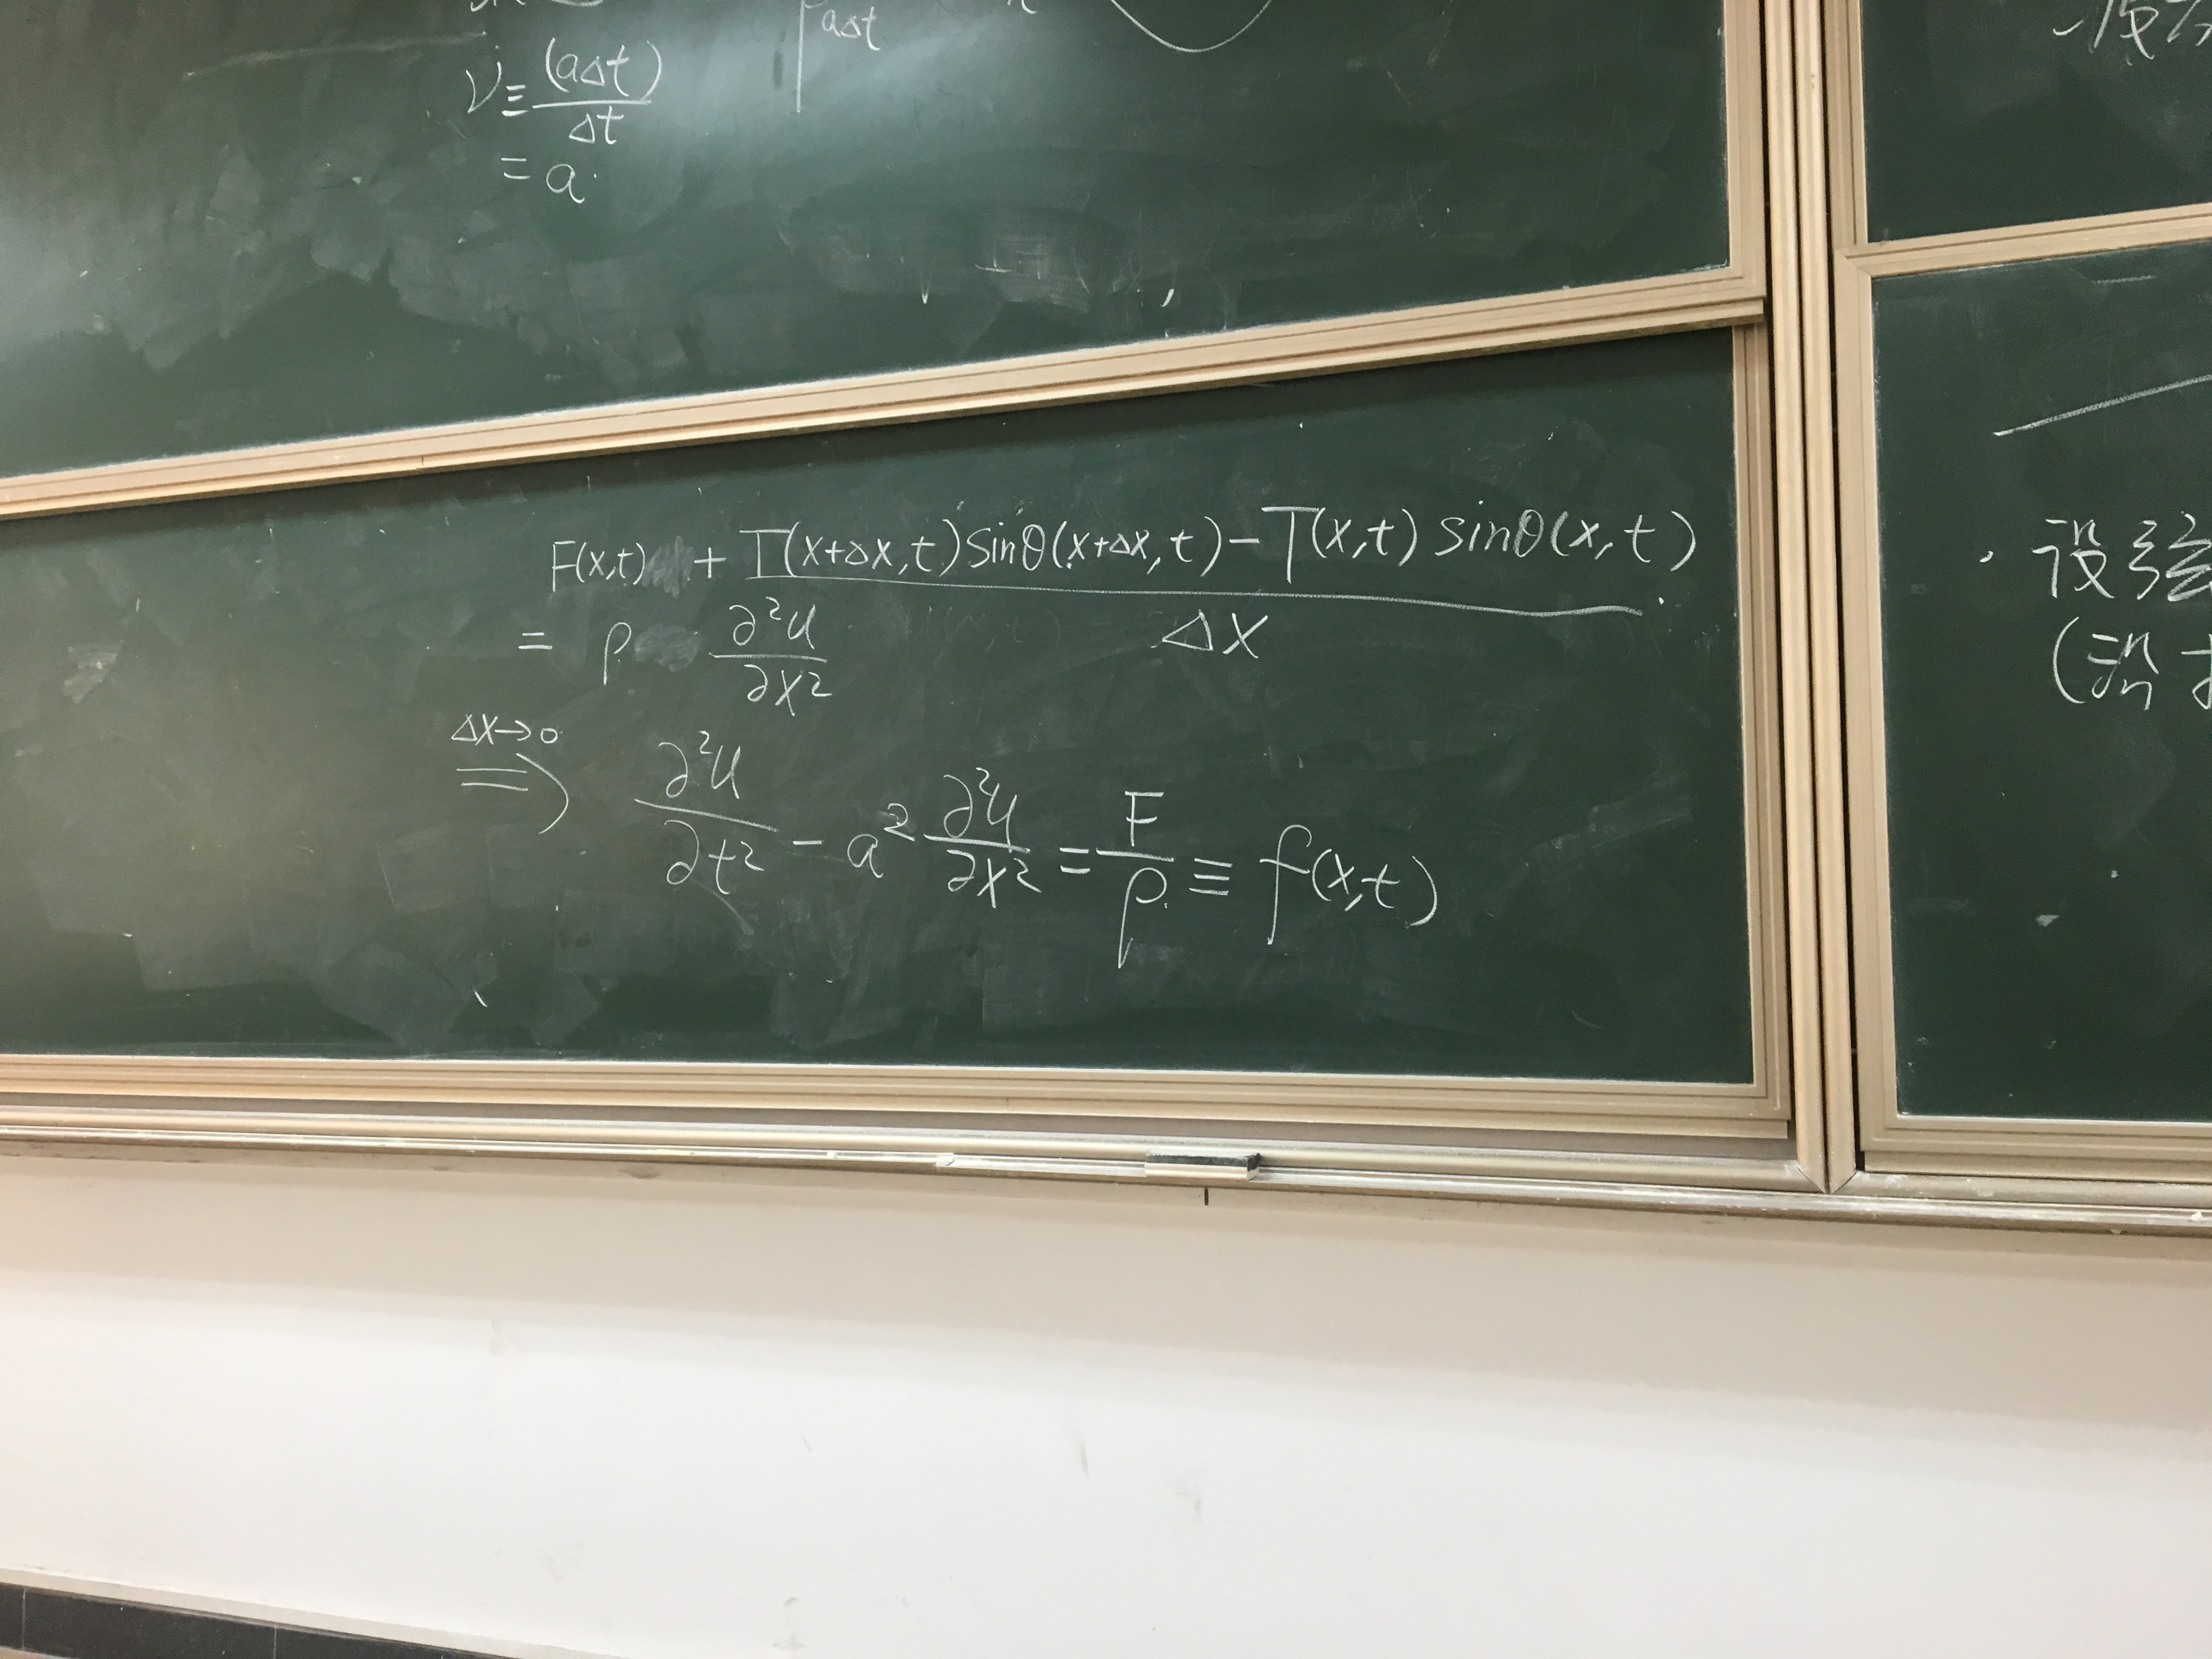 aΔt
V ≡ (aΔt)/Δt
= a
F(x,t) + (T(x+Δx,t)sinθ(x+Δx,t) − T(x,t) sinθ(x,t))/Δx
= ρ ∂²u/∂x²
Δx→0
⇒ ∂²u/∂t² − a² ∂²u/∂x² = F/ρ ≡ f(x,t)
· 设弦